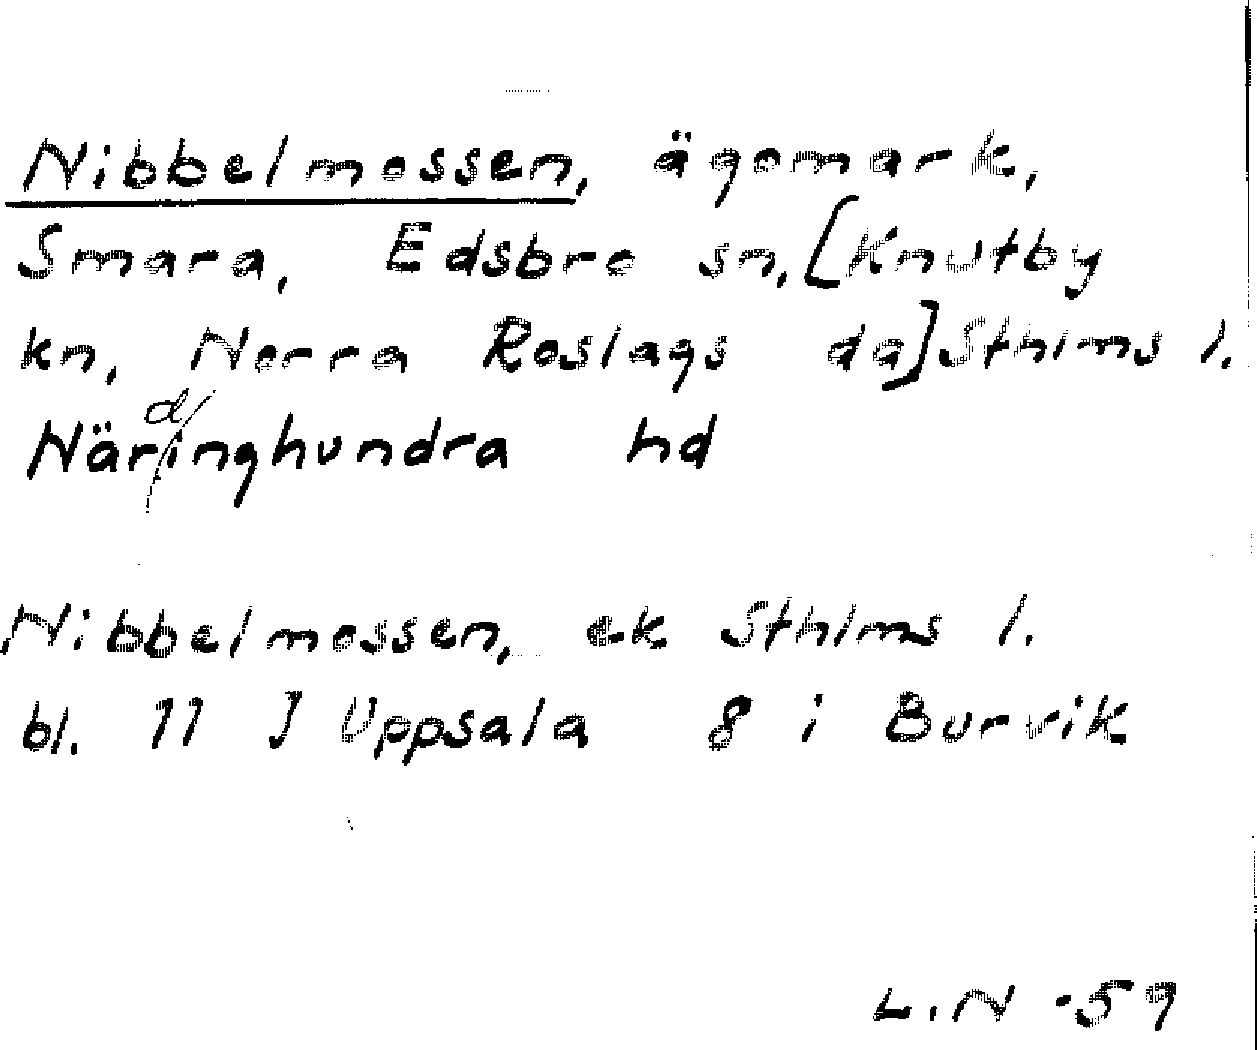 Nibbelmossen, ägomark,
Smara, Edsbro sn, [Knutby
kn, Norra Roslags da] Sthlms l.
Närdinghundra hd
Nibbelmossen, ek Sthlms l.
bl. 11 J Uppsala 8 i Burvik
L.N -59